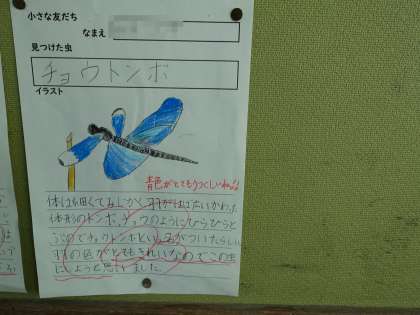 小さな友だち
なまえ
見つけた虫
チョウトンボ
イラスト
青色がとてもうつくしいね。
体は細くてみじかく羽がはばたいかわった
体形のトンボ。チョウのようにひらひらと
とぶのでチョウトンボという名がついたらしい。
羽の色がとてもきれいなのでこの虫
にしようと思いました。